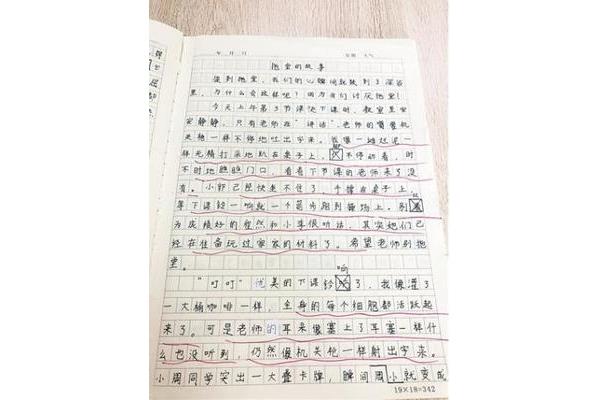 年 月 日 星期 天气
拖堂的故事
提到拖堂，我们的心瞬间就跌到了深谷
里，为什么会这样呢？因为我们讨厌拖堂！
今天上午第3节课快下课时，教室里安
安静静，只有老师在“讲话”，老师的嘴像机
关枪一样不停地吐出字来。我像一堆烂泥一
样无精打采地趴在桌子上，不停听着，时
不时地瞧瞧门口，看看下节课的老师来了没
有。小郭己经快坐不住了，手撑在桌子上，
等下课铃一响就一个箭步跑到操场上。别
为成绩好的程然和小李很听话，其实她们已
经在准备玩过家家的材料了。希望老师别拖
堂。
“叮叮”优美的下课铃响了，我像灌了
一大桶咖啡一样，全身的每个细胞都活跃起
来了。可是老师的耳朵像塞上了耳塞一样什
么也没听到，仍然像机关枪一样射出字来。
小周同学突出一大叠卡牌，瞬间周小就变成
19×18=342